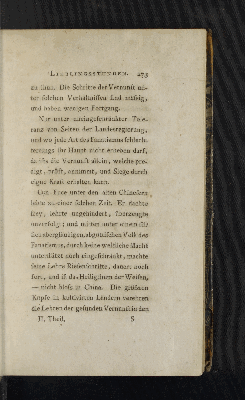 LIEBLINGSSTUNDEN. 273
zu thun. Die Schritte der Vernunft un-
ter solchen Verhältnissen sind mäßig,
und haben wenigen Fortgang.
Nur unter uneingeschränkter Tole-
ranz von Seiten der Landesregierung,
und wo jede Art des Fanatismus schlech-
terdings ihr Haupt nicht erheben darf,
da die Vernunft allein, welche pre-
digt, prüft, ernennt, und Siege durch
eigne Kraft erhalten kann.
Con-Fuze unter den alten Chinesern
lebte zu einer solchen Zeit. Er dachte
frey, lehrte ungehindert, überzeugte
unverfolgt; und mitten unter einem
abergläubigen, abgöttischen Volk des
Fanatismus, durch keine weltliche Macht
unterstützt noch eingeschränkt, machte
seine Lehre Riesenschritte, dauert noch
fort, und ist das Heiligthum der Weisen,
— nicht bloss in China. Die größern
Köpfe in kultivirten Ländern verehren
die Lehren der gesunden Vernunft in den
II. Theil. S